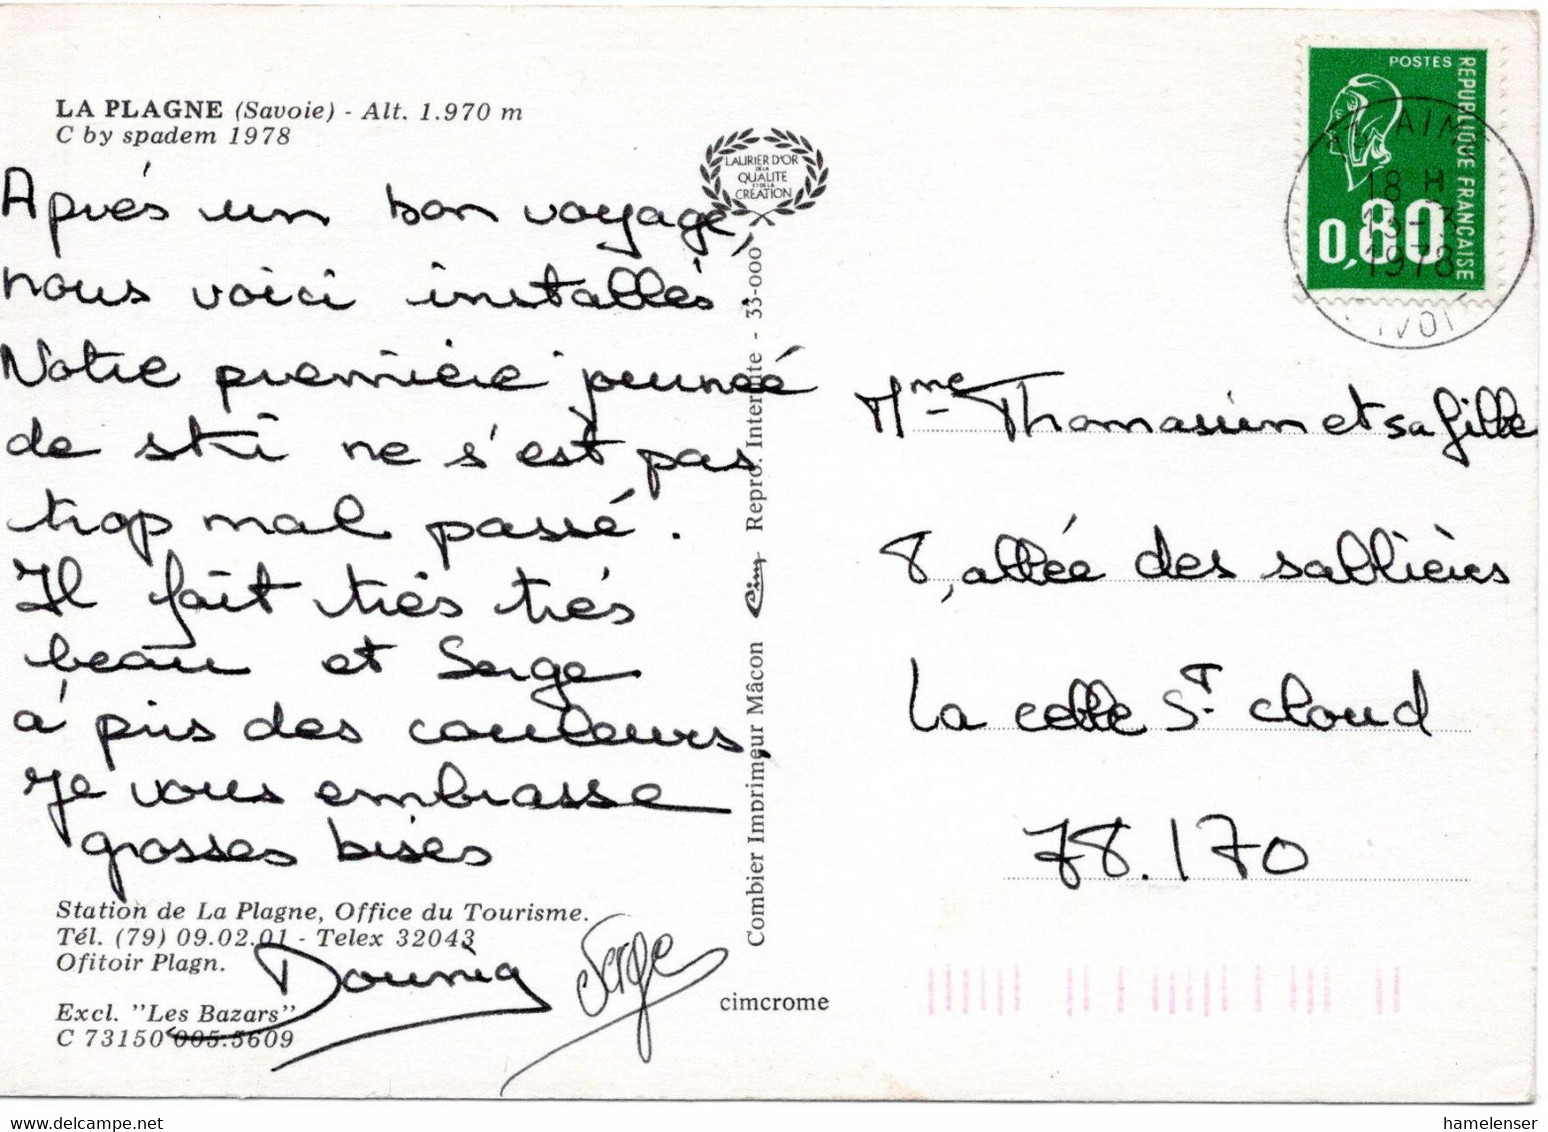 LA PLAGNE (Savoie) - Alt. 1.970 m
C by spadem 1978
Après un bon voyage,
nous voici installés.
Notre première journeé
de ski ne s'est pas
trop mal passé.
Il fait très très
beau et Serge
à pris des couleurs.
Je vous embrasse
grosses bises
Station de La Plagne, Office du Tourisme.
Tél. (79) 09.02.01 - Telex 32043
Ofitoir Plagn.
Serge
Excl. "Les Bazars"
C 73150 005.5609
LAURIER D'OR
DE LA
QUALITE
ET DE LA
CREATION
Combier Imprimeur Mâcon Cim Repro. Interdite - 35-000
cimcrome
POSTES
REPUBLIQUE FRANCAISE
0,80
18 H
1978
Mme Thomassin et sa fille
8, allée des sablières
La celle St cloud
78.170
hamelenser